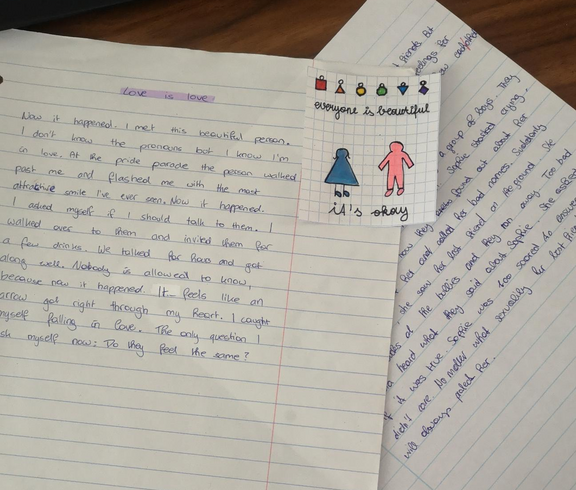 Love is love
Now it happened. I met this beautiful person.
I don't know the pronouns but I know I'm
in love. At the pride parade the person walked
past me and flashed me with the most
attractive smile I've ever seen. Now it happened.
I asked myself if I should talk to them. I
walked over to them and invited them for
a few drinks. We talked for hours and got
along well. Nobody is allowed to know,
because now it happened. It feels like an
arrow got right through my heart. I caught
myself falling in love. The only question I
sk myself now: Do they feel the same?
everyone is beautiful
it's okay
friends but
feelings for
a group of boys. They
Sophie started crying.
found out about her
her and called her bad names. Suddenly
she saw her best friend on the ground. She
at the bullies and they ran away. Too bad
heard what they said about Sophie. She asked
if it was true. Sophie was too scared to answer
didn't care no matter what sexuality her best friend
will always fight for.